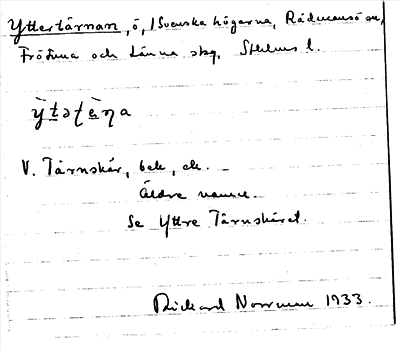 Yttertärnan, ö, i Svenska högarna, Rådmansö sn,
Frötuna och Länna skg, Sthlms l.
ỳtətä̀ṇa
V. Tärnskär, bek, ek.
Äldre namn.
Se Yttre Tärnskäret.
Rickard Norrman 1933.